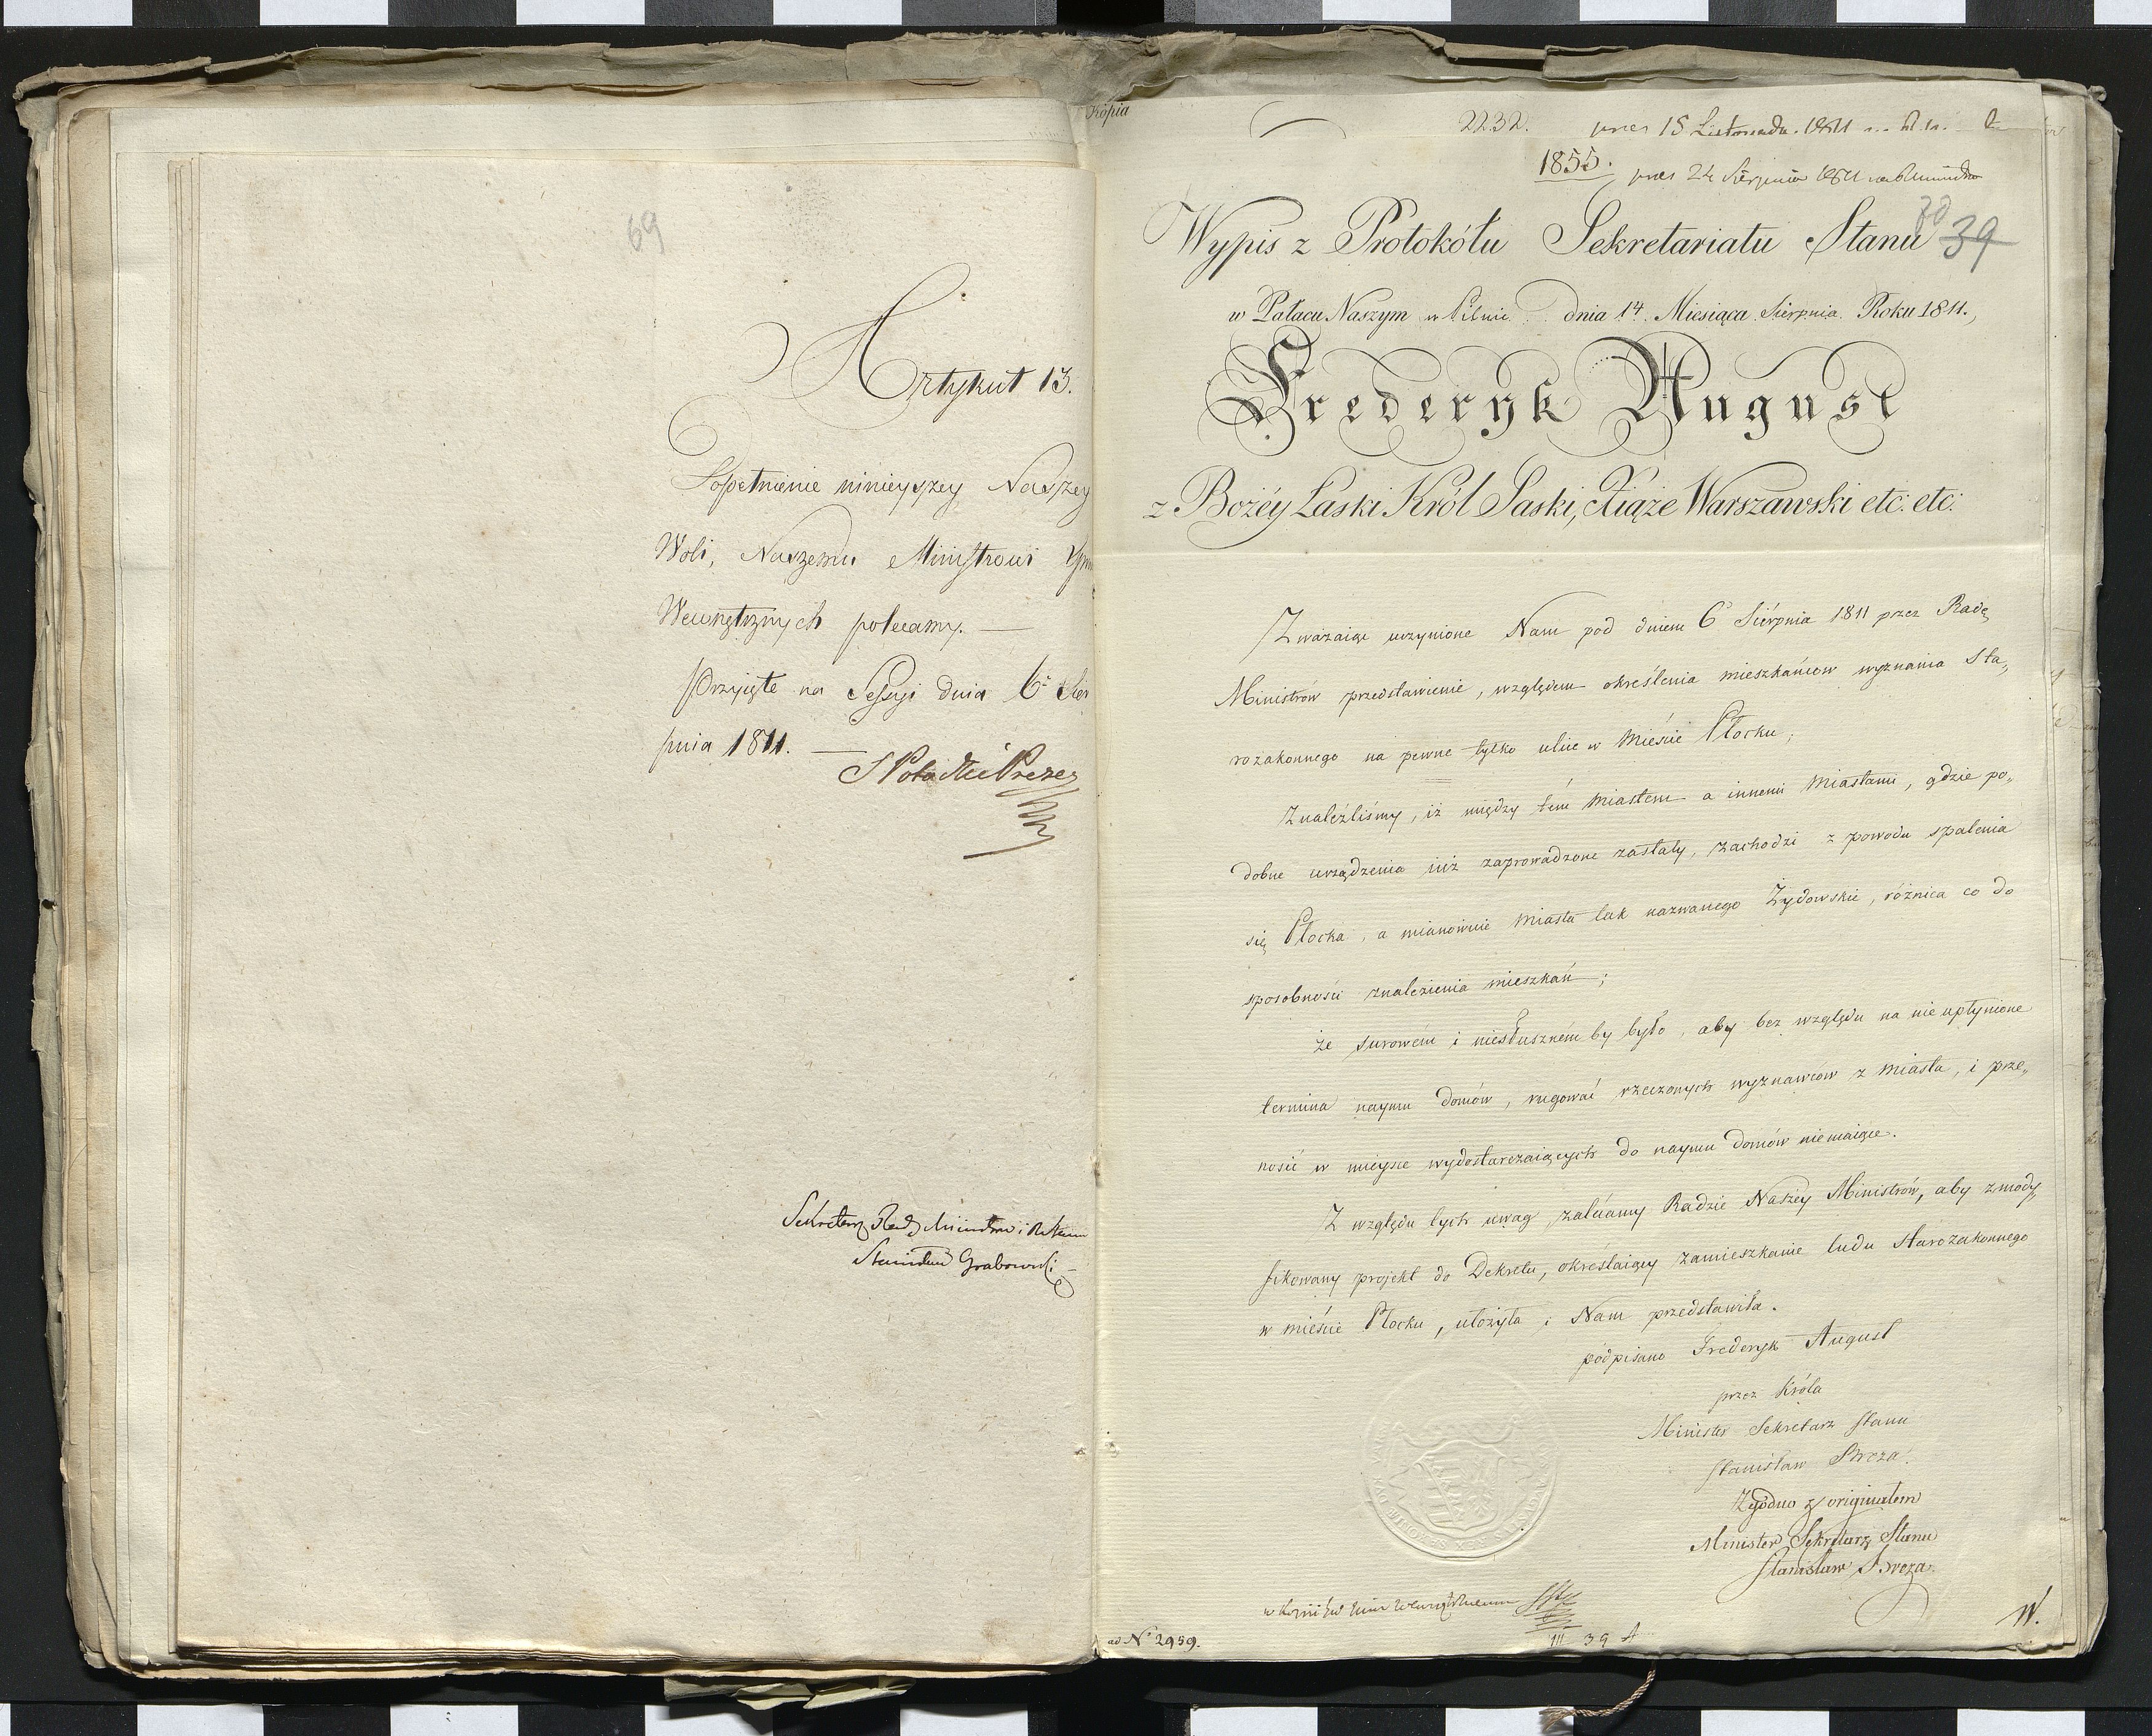 69
Artykuł 13.
Dopełnienie ninieyszey Naszey
Woli, Naszemu Ministrowi
Wewnętrznych polecamy. —
Przyjęte na Sessyi dnia 6º Sier
pnia 1811. —
Prezes
Sekretarz Rady Ministrów i
Stanisław Grabowski
Kópia
2232. przez 15 Listopada 1811
1855. przez 24 Sierpnia 1811
Wypis z Protokółu Sekretariatu Stanu
70 39
w Pałacu Naszym w Pilnic dnia 14. Miesiąca Sierpnia Roku 1811.
Frederyk August
z Bożéy Łaski Król Saski, Xiąże Warszawski etc: etc:
Zważaiąc uczynione Nam pod dniem 6 Sierpnia 1811 przez Radę
Ministrów przedstawienie, względem określenia mieszkańców wyznania sta„
rozakonnego na pewne tylko ulice w mieście Płocku;
Znaleźliśmy, iż między tém miastem a innemi miastami, gdzie po„
dobne urządzenia iuż zaprowadzone zostały, zachodzi z powodu spalenia
się Płocka, a mianowicie miasta tak nazwanego Żydowskie, różnica co do
sposobności znalezienia mieszkań;
że surowém i niesłuszném by było, aby bez względu na nie upłynione
termina naymu domów, rugować rzeczonych wyznawców z miasta, i prze„
nosić w mieysce wydostarczaiących do naymu domów niemaiące.
Z względu tych uwag, zalécamy Radzie Naszéy Ministrów, aby zmody„
fikowany projekt do Dekretu, określaiący zamieszkanie ludu starozakonnego
w mieście Płocku, ułożyła i Nam przedstawiła.
podpisano Frederyk August
przez Króla
Minister Sekretarz Stanu
Stanisław Breza.
Zgodno z originałem
Minister Sekretarz Stanu
Stanisław Breza
ad Nº 2959.
III 39
W.